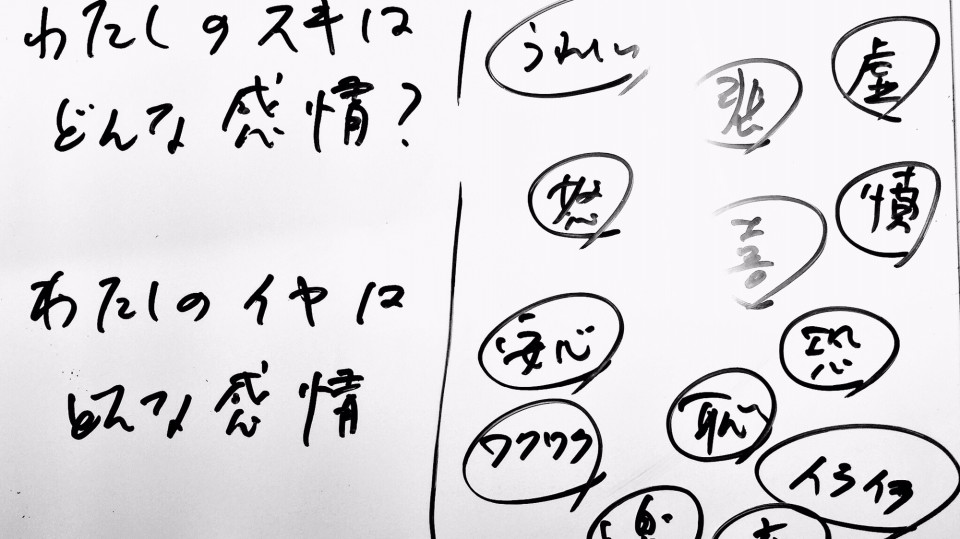 わたしのスキは
どんな感情?
わたしのイヤは
どんな感情
うれしい
悲
虚
怒
喜
憤
安心
恐
恥
ワクワク
イライラ